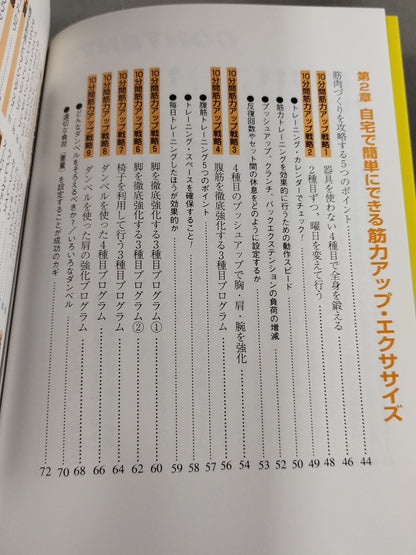 第2章 自宅で簡単にできる筋力アップ・エクササイズ
筋肉づくりを攻略する5つのポイント 44
10分間筋力アップ戦略1 器具を使わない4種目で全身を鍛える 46
10分間筋力アップ戦略2 2種目ずつ、曜日を変えて行う 48
●トレーニング・カレンダーでチェック! 49
●筋力トレーニングを効果的に行うための動作スピード 50
●プッシュアップ、クランチ、バックエクステンションの負荷の増減 52
●反復回数やセット間の休息をどのように設定するか 53
10分間筋力アップ戦略3 4種目のプッシュアップで胸・肩・腕を強化 54
10分間筋力アップ戦略4 腹筋を徹底強化する3種目プログラム 56
●腹筋トレーニング5つのポイント 57
●トレーニング・スペースを確保すること! 58
●毎日トレーニングしたほうが効果的か 59
10分間筋力アップ戦略5 脚を徹底強化する3種目プログラム① 60
10分間筋力アップ戦略6 脚を徹底強化する3種目プログラム② 62
10分間筋力アップ戦略7 椅子を利用して行う3種目プログラム 64
10分間筋力アップ戦略8 ダンベルを使った4種目プログラム 66
10分間筋力アップ戦略9 ダンベルを使った肩の強化プログラム 68
●どんなダンベルをそろえるべきか?/いろいろなダンベル 70
●適切な負荷(重量)を設定することが成功のカギ 72